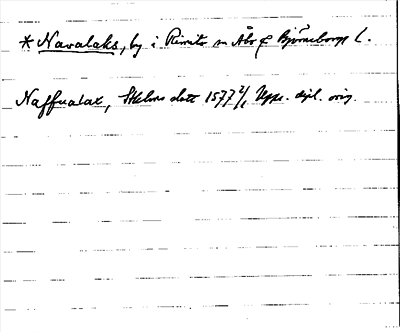 * Navalaks, by i Rimito sn Åbo & Björneborgs L.
Naffualax, Stkhms datt 1577 2/1 Upps. dipl. orig.